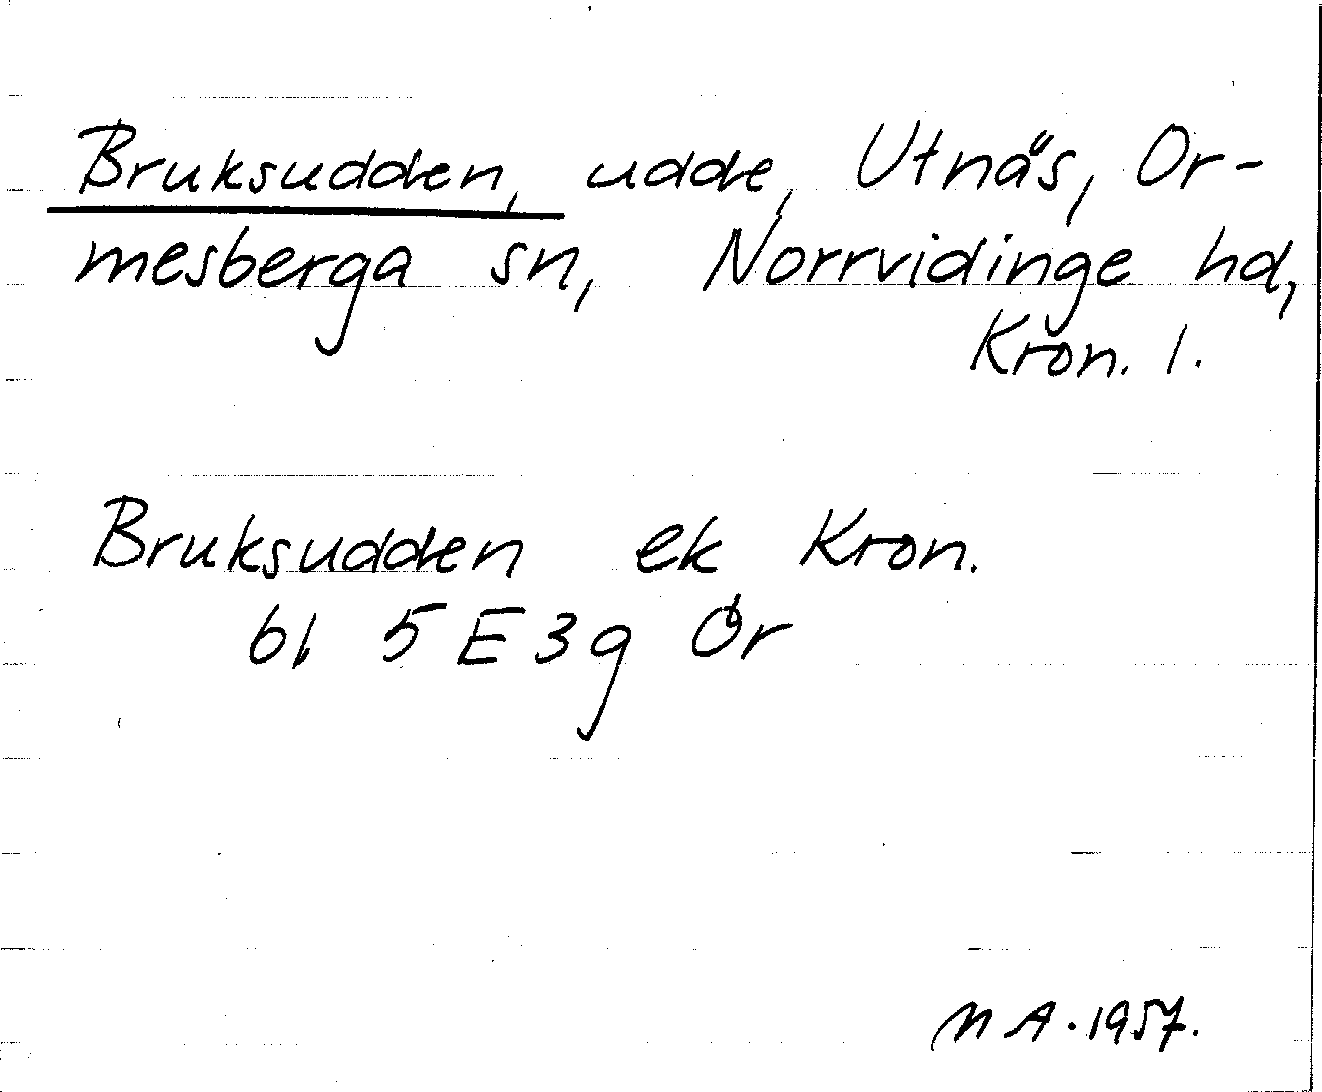 Bruksudden, udde, Utnäs, Or-
mesberga sn, Norrvidinge hd,
Kron. l.
Bruksudden ek Kron.
bl 5 E 3 g Ör
M A. 1957.